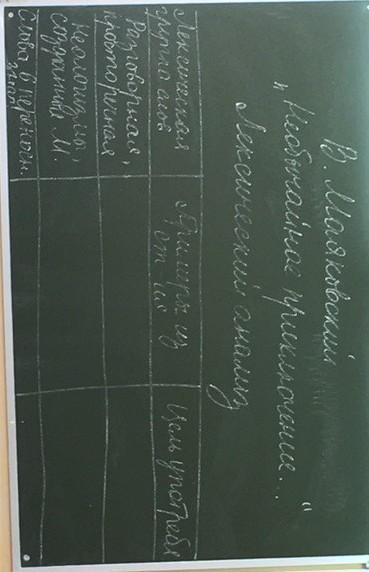 В. Маяковский
„Необычайное приключение..."
Лексический анализ
Лексическая группа слов
Примеры из от-ка
Цель употребл
Разговорная, просторечная
Неологизмы, созданные М.
Слова в перенosн. знач.